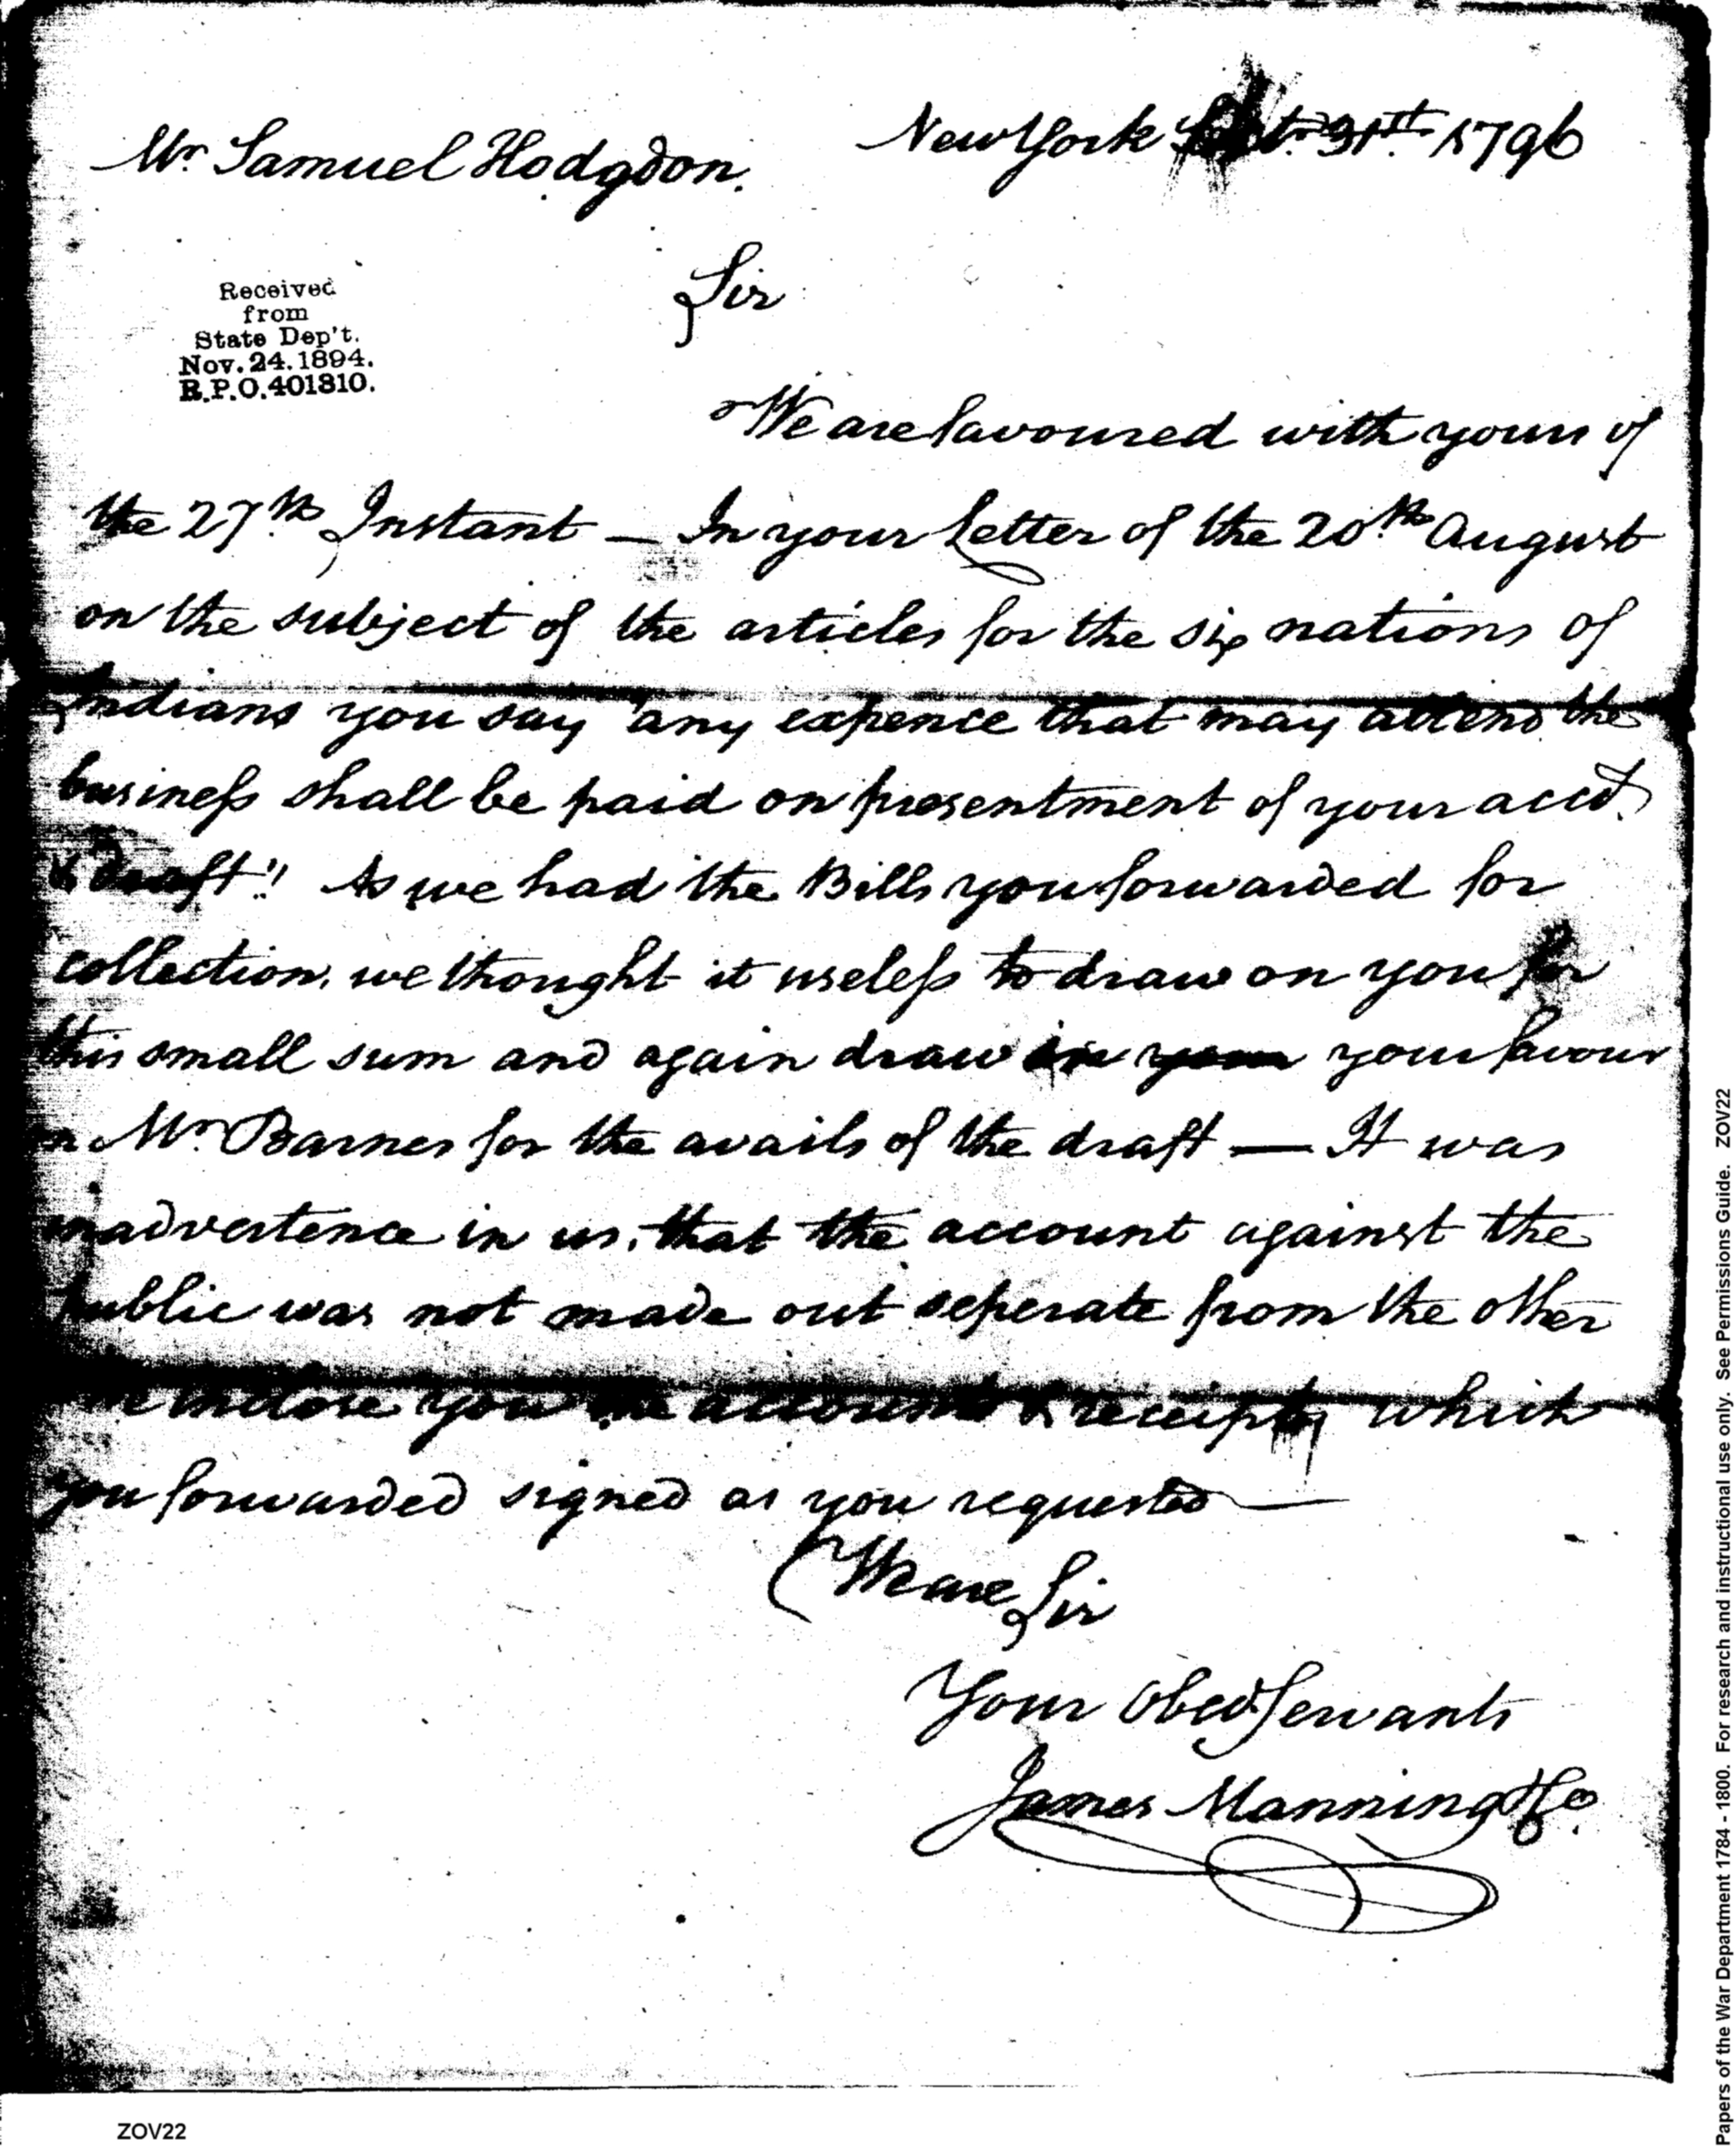 New York 31st. 1796
Mr. Samuel Hodgdon.
Sir
Received
from
State Dep't.
Nov. 24. 1894.
R.P.O. 401310.
We are favoured with yours of
the 27th. Instant — In your Letter of the 20th. August
on the subject of the articles for the six nations of
Indians you say "any expence that may attend the
business shall be paid on presentment of your acct.
& draft"! As we had the Bills you forwarded for
collection, we thought it useless to draw on you for
this small sum and again draw in your your favour
on Mr. Barnes for the avails of the draft — It was
inadvertence in us, that the account against the
public was not made out seperate from the other
we inclose you the accounts & receipts which
you forwarded signed as you requested —
We are Sir
Your Obed Servants
James Manning & Co.
ZOV22
Papers of the War Department 1784 - 1800. For research and instructional use only. See Permissions Guide. ZOV22